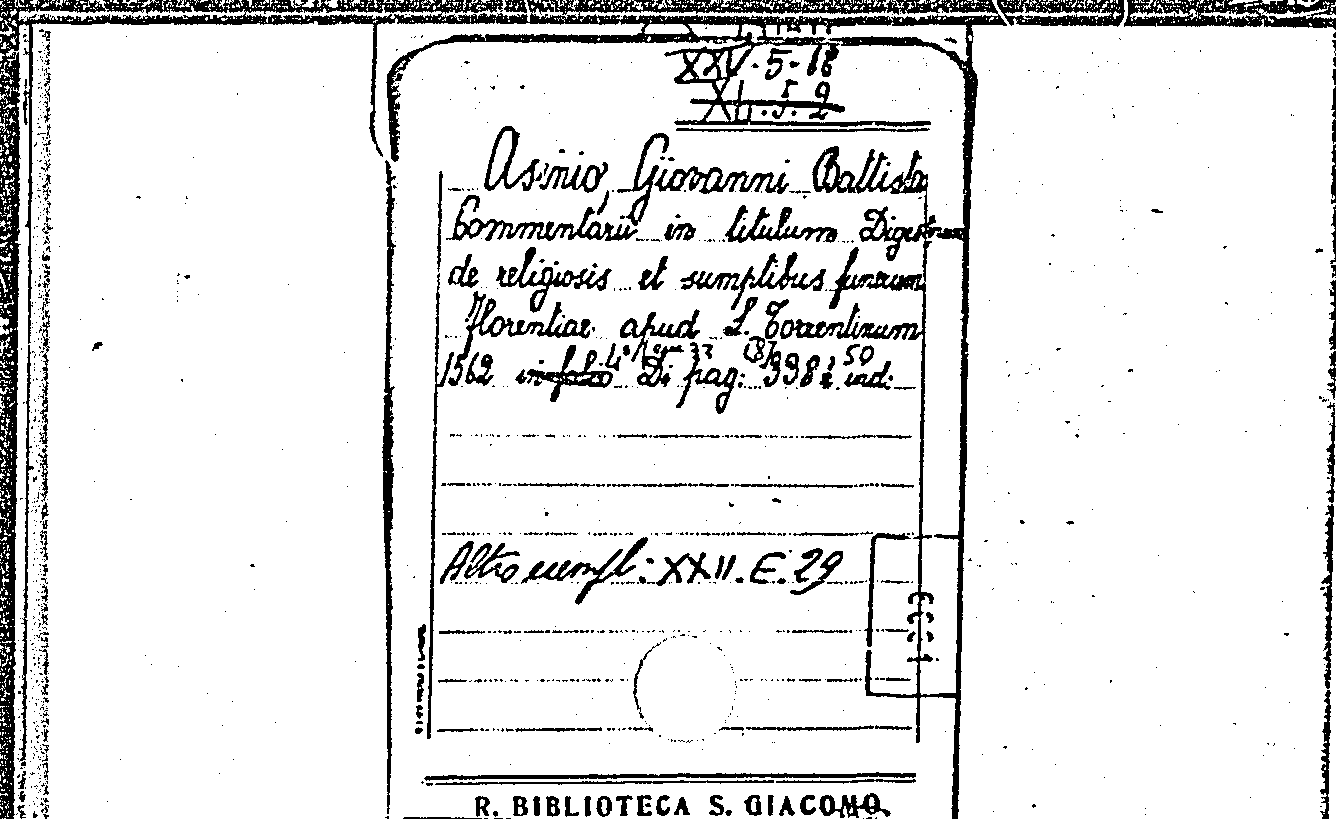 XXV.5.18
XL.5.2 9
Asinio, Giovanni Battista
Commentarii in titulum Digestorum
de religiosis et sumptibus funerum
Florentiae apud L. Torrentinum
4° (8) 50
1562 in folio Di pag: 398 e ind:
Altro esempl: XXII.E.29
R. BIBLIOTECA S. GIACOMO